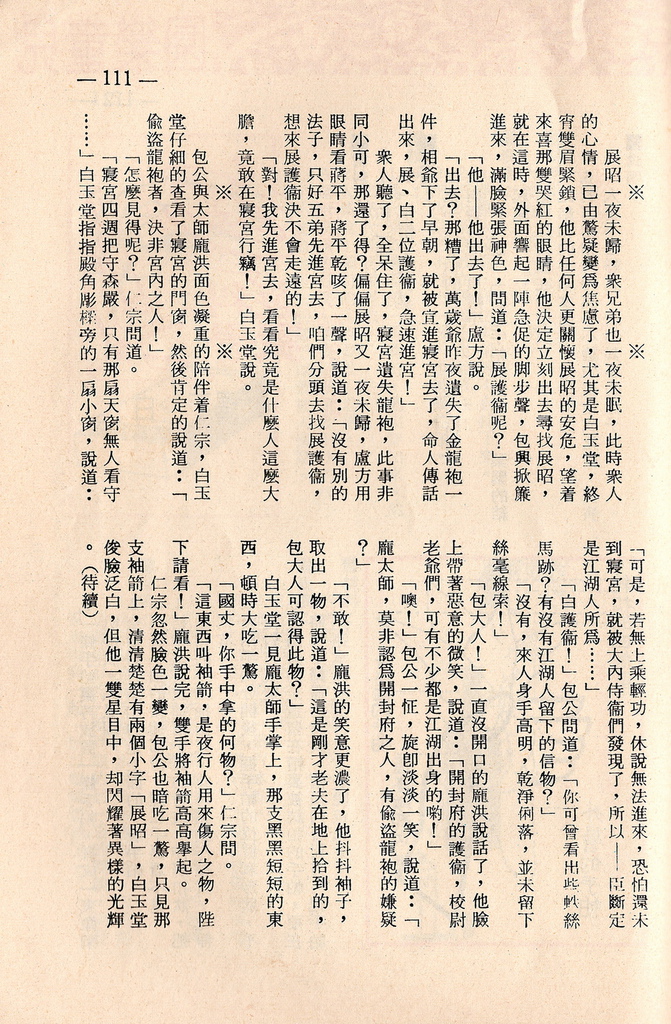 — 111 —
※
※
展昭一夜未歸，衆兄弟也一夜未眠，此時衆人
的心情，已由驚疑變爲焦慮了，尤其是白玉堂，終
宵雙眉緊鎖，他比任何人更關懷展昭的安危，望着
來喜那雙哭紅的眼睛，他決定立刻出去尋找展昭，
就在這時，外面響起一陣急促的脚步聲，包興掀簾
進來，滿臉緊張神色，問道：「展護衞呢？」
「他——他出去了！」盧方說。
「出去？那糟了，萬歲爺昨夜遺失了金龍袍一
件，相爺下了早朝，就被宣進寢宮去了，命人傳話
出來，展、白二位護衞，急速進宮！」
衆人聽了，全呆住了，寢宮遺失龍袍，此事非
同小可，那還了得？偏偏展昭又一夜未歸，盧方用
眼睛看蔣平，蔣平乾咳了一聲，說道：「沒有別的
法子，只好五弟先進宮去，咱們分頭去找展護衞，
想來展護衞決不會走遠的！」
「對！我先進宮去，看看究竟是什麼人這麼大
膽，竟敢在寢宮行竊！」白玉堂說。
※
※
包公與太師龐洪面色凝重的陪伴着仁宗，白玉
堂仔細的查看了寢宮的門窗，然後肯定的說道：「
偷盜龍袍者，決非宮內之人！」
「怎麼見得呢？」仁宗問道。
「寢宮四週把守森嚴，只有那扇天窗無人看守
……」白玉堂指指殿角彫樑旁的一扇小窗，說道：
「可是，若無上乘輕功，休說無法進來，恐怕還未
到寢宮，就被大內侍衞們發現了，所以——臣斷定
是江湖人所爲……」
「白護衞！」包公問道：「你可曾看出些蛛絲
馬跡？有沒有江湖人留下的信物？」
「沒有，來人身手高明，乾淨俐落，並未留下
絲毫線索！」
「包大人！」一直沒開口的龐洪說話了，他臉
上帶著惡意的微笑，說道：「開封府的護衞，校尉
老爺們，可有不少都是江湖出身的喲！」
「噢！」包公一怔，旋卽淡淡一笑，說道：「
龐太師，莫非認爲開封府之人，有偷盜龍袍的嫌疑
？」
「不敢！」龐洪的笑意更濃了，他抖抖袖子，
取出一物，說道：「這是剛才老夫在地上拾到的，
包大人可認得此物？」
白玉堂一見龐太師手掌上，那支黑黑短短的東
西，頓時大吃一驚。
「國丈，你手中拿的何物？」仁宗問。
「這東西叫袖箭，是夜行人用來傷人之物，陛
下請看！」龐洪說完，雙手將袖箭高高舉起。
仁宗忽然臉色一變，包公也暗吃一驚，只見那
支袖箭上，清清楚楚有兩個小字「展昭」，白玉堂
俊臉泛白，但他一雙星目中，却閃耀著異樣的光輝
。（待續）